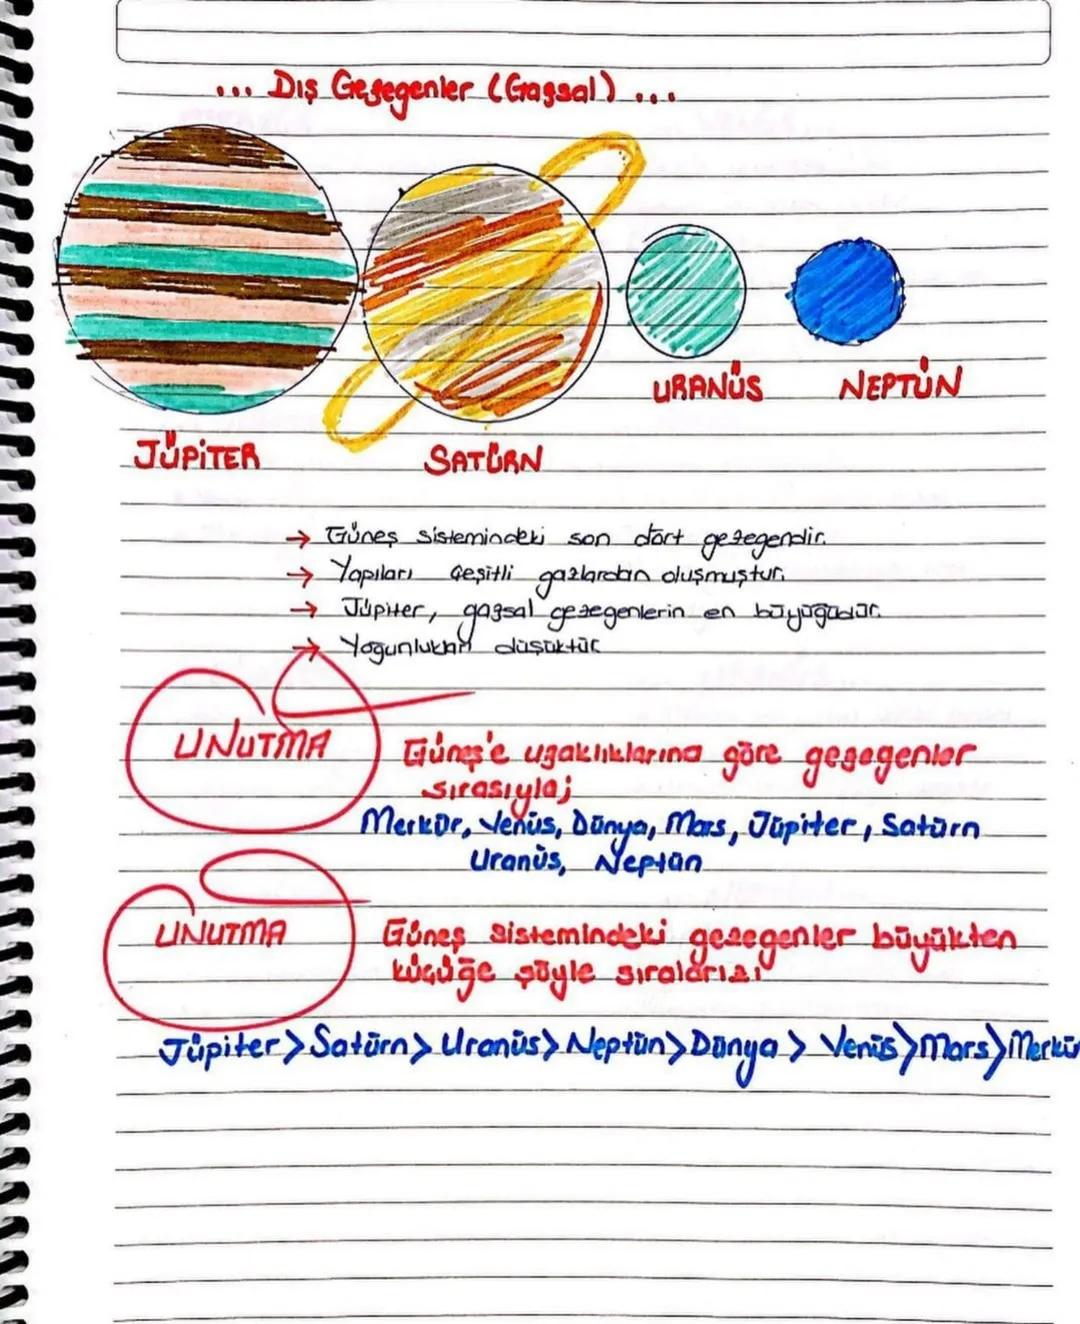 ... Dış Gezegenler (Gazsal) ...
URANÜS NEPTÜN
JÜPİTER SATÜRN
→ Güneş sistemindeki son dört gezegendir.
→ Yapıları çeşitli gazlardan oluşmuştur.
→ Jüpiter, gazsal gezegenlerin en büyüğüdür.
→ Yoğunlukları düşüktür
UNUTMA Güneş'e uzaklıklarına göre gezegenler
sırasıyla;
Merkür, Venüs, Dünya, Mars, Jüpiter, Satürn
Uranüs, Neptün
UNUTMA Güneş sistemindeki gezegenler büyükten
küçüğe şöyle sıralarız;
Jüpiter > Satürn > Uranüs > Neptün > Dünya > Venüs > Mars > Merkür